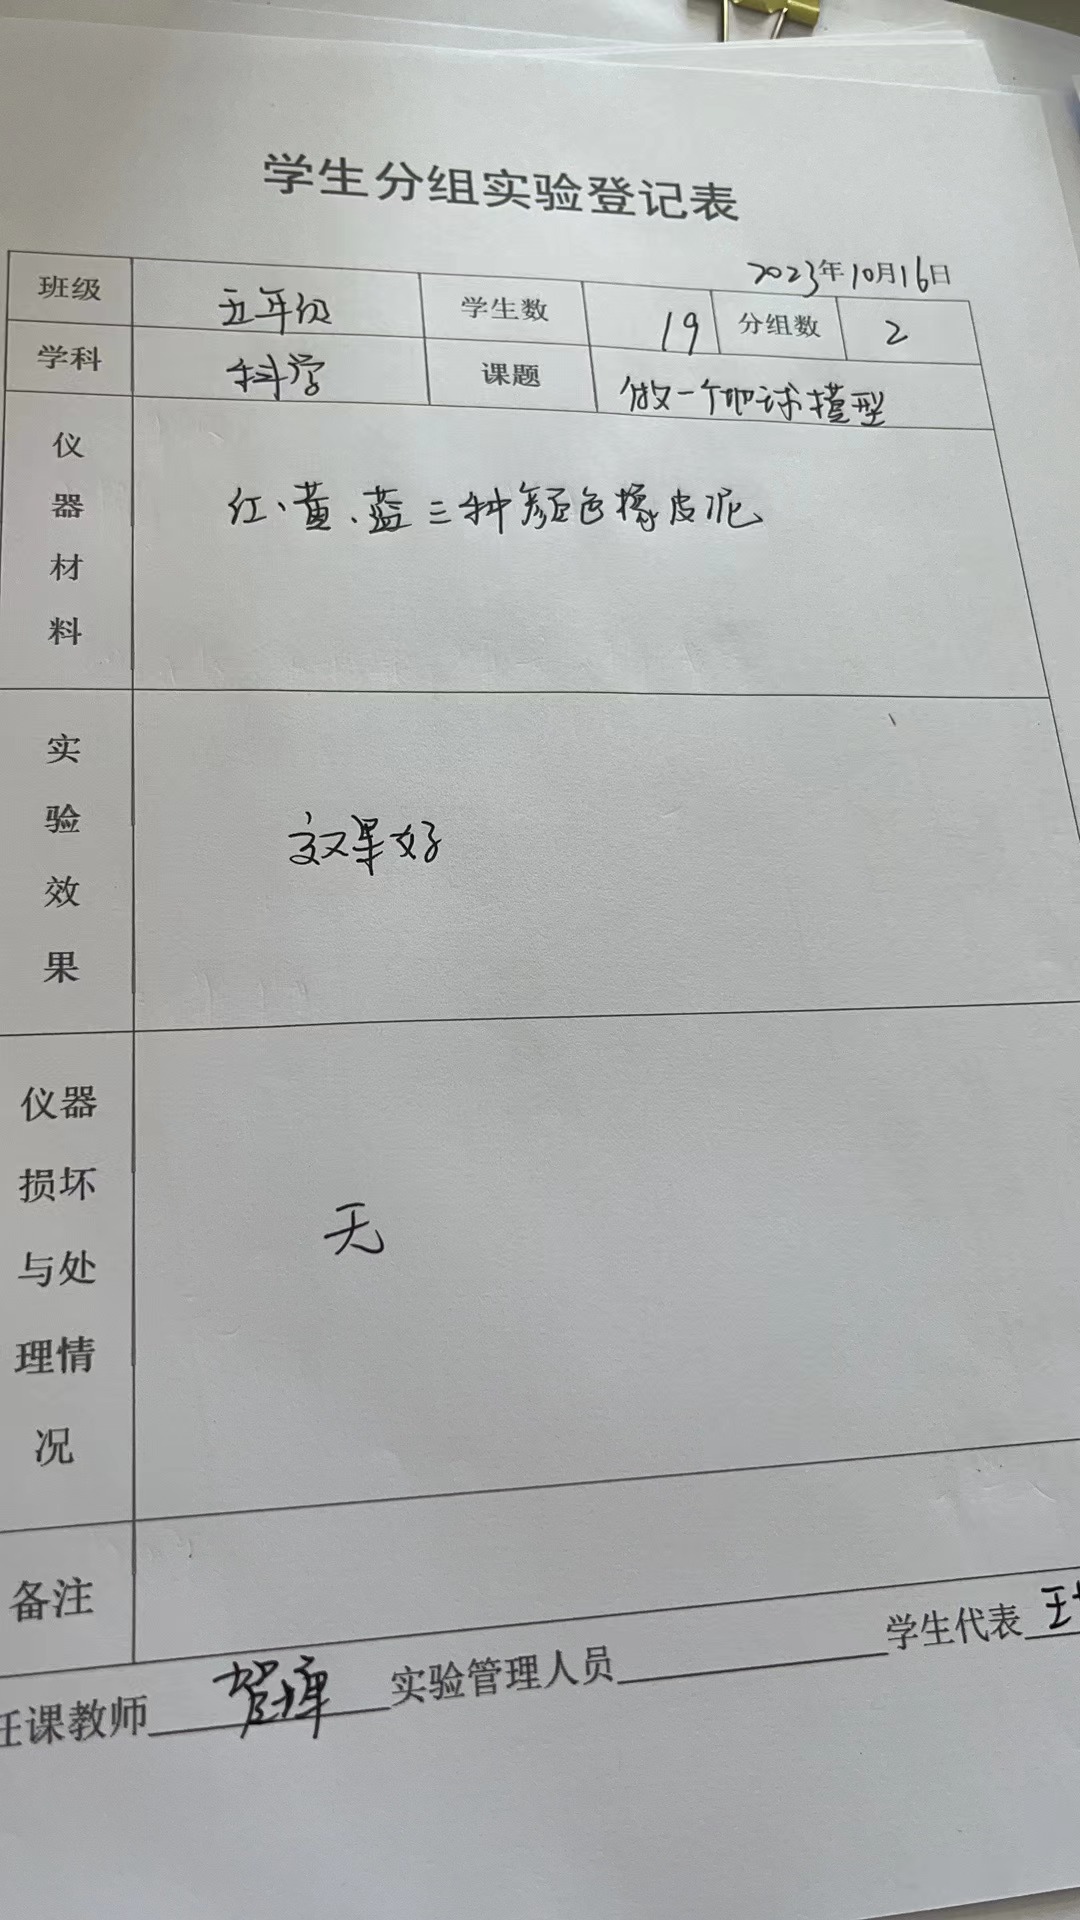 学生分组实验登记表
2023年10月16日
班级 五年级 学生数 19 分组数 2
学科 科学 课题 做一个地球模型
仪器材料 红、黄、蓝三种颜色橡皮泥
实验效果 效果好
仪器损坏与处理情况 无
备注
任课教师 实验管理人员 学生代表 王